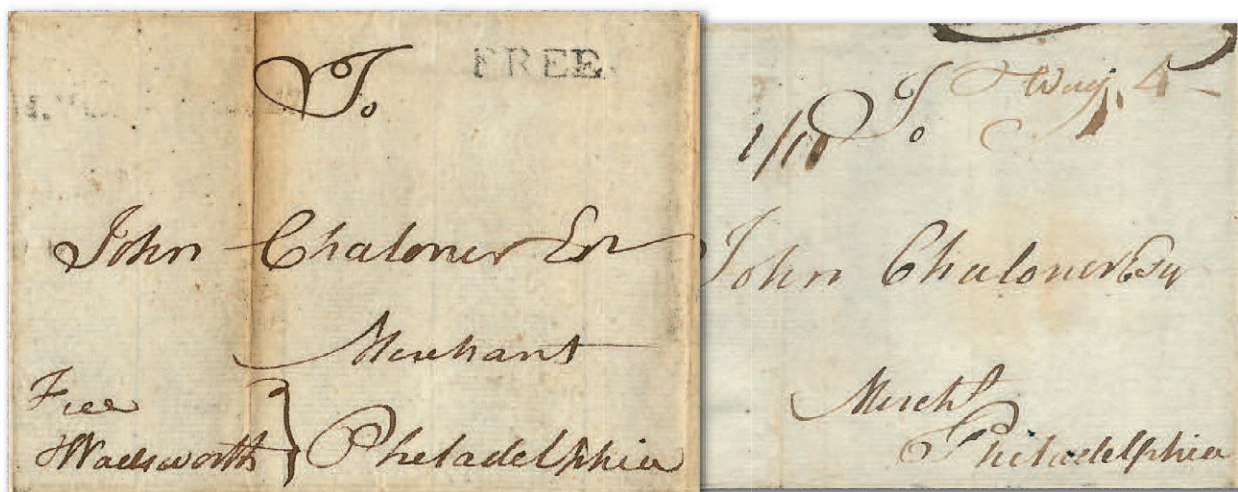 FREE
To
John Chaloner Esqr
Merchant
Free
JWadsworth } Pheladelphia
To Way 4
1/10
John Chaloner Esqr
Mercht
Philadelphia